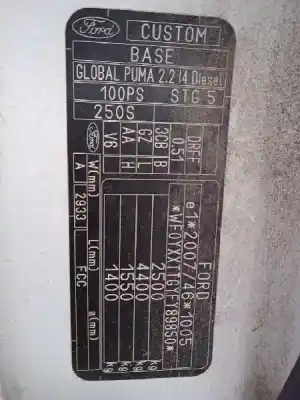 Ford
CUSTOM
BASE
GLOBAL PUMA 2.2 I4 Diesel
100PS STG 5
250S
Ford
V6
AA H
GZ L
3CB B
0.51
DRFF
W(mm) L(mm) a(mm)
A 2933 FCC
FORD
e1*2007/46*1005
2500 kg
4400 kg
1550 kg
1400 kg